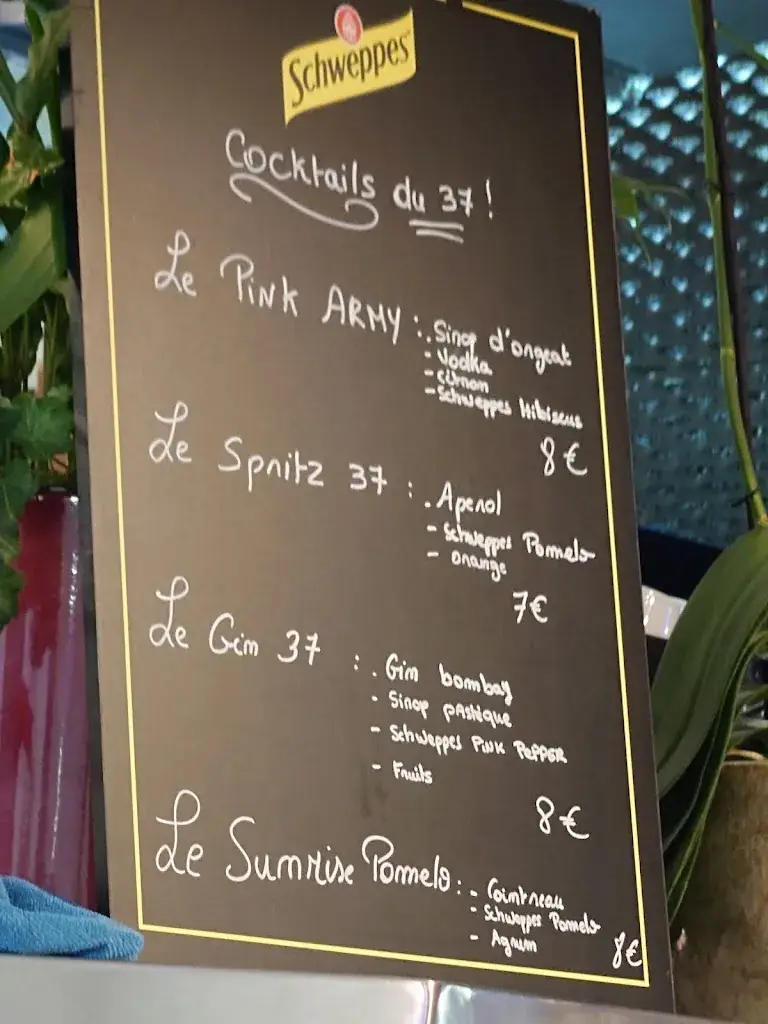 Schweppes
Cocktails du 37 !
Le PINK ARMY : . Sirop d'orgeat
- Vodka
- Citron
- Schweppes Hibiscus
8€
Le Spritz 37 : . Aperol
- Schweppes Pomelo
- Orange
7€
Le Gin 37 : . Gin bombay
- Sirop pastèque
- Schweppes PINK PEPPER
- Fruits
8€
Le Sunrise Pomelo : - Cointreau
- Schweppes Pomelo
- Agrum
8€